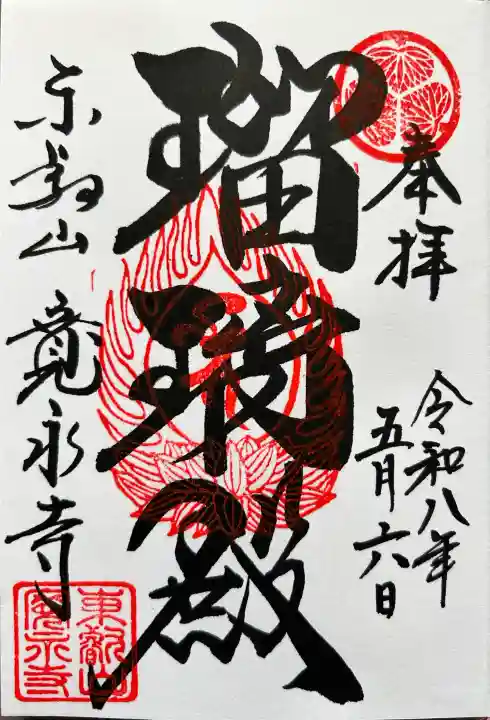 奉拝
令和八年
五月六日
瑠璃殿
東叡山 寛永寺
東叡山
寛永寺